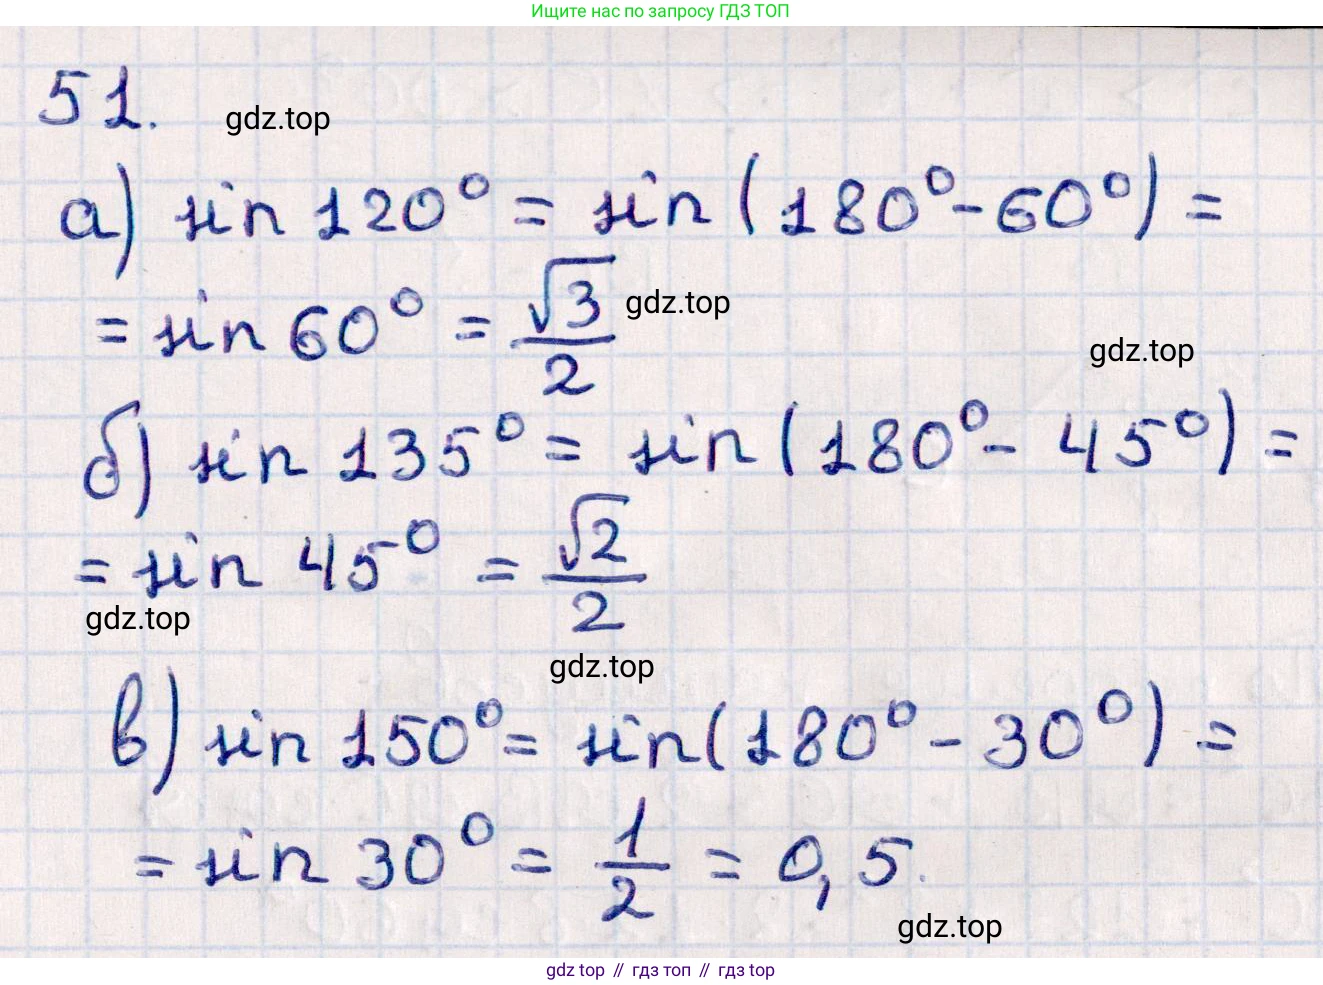 Ищите нас по запросу ГДЗ ТОП
51.
gdz.top
а) sin 120° = sin (180° - 60°) =
= sin 60° = √3/2
gdz.top
gdz.top
б) sin 135° = sin (180° - 45°) =
= sin 45° = √2/2
gdz.top
gdz.top
в) sin 150° = sin (180° - 30°) =
= sin 30° = 1/2 = 0,5.
gdz.top
gdz top // гдз топ // gdz top